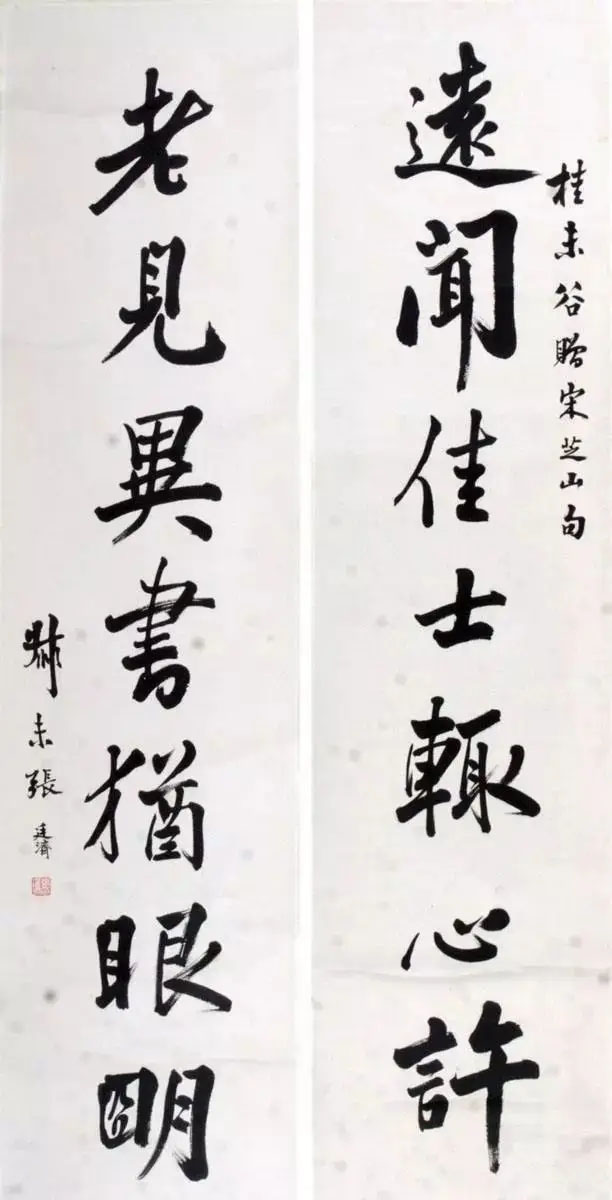 桂未谷贈宋芝山句
遠聞佳士輒心許
老見異書猶眼朙
叔未張廷濟